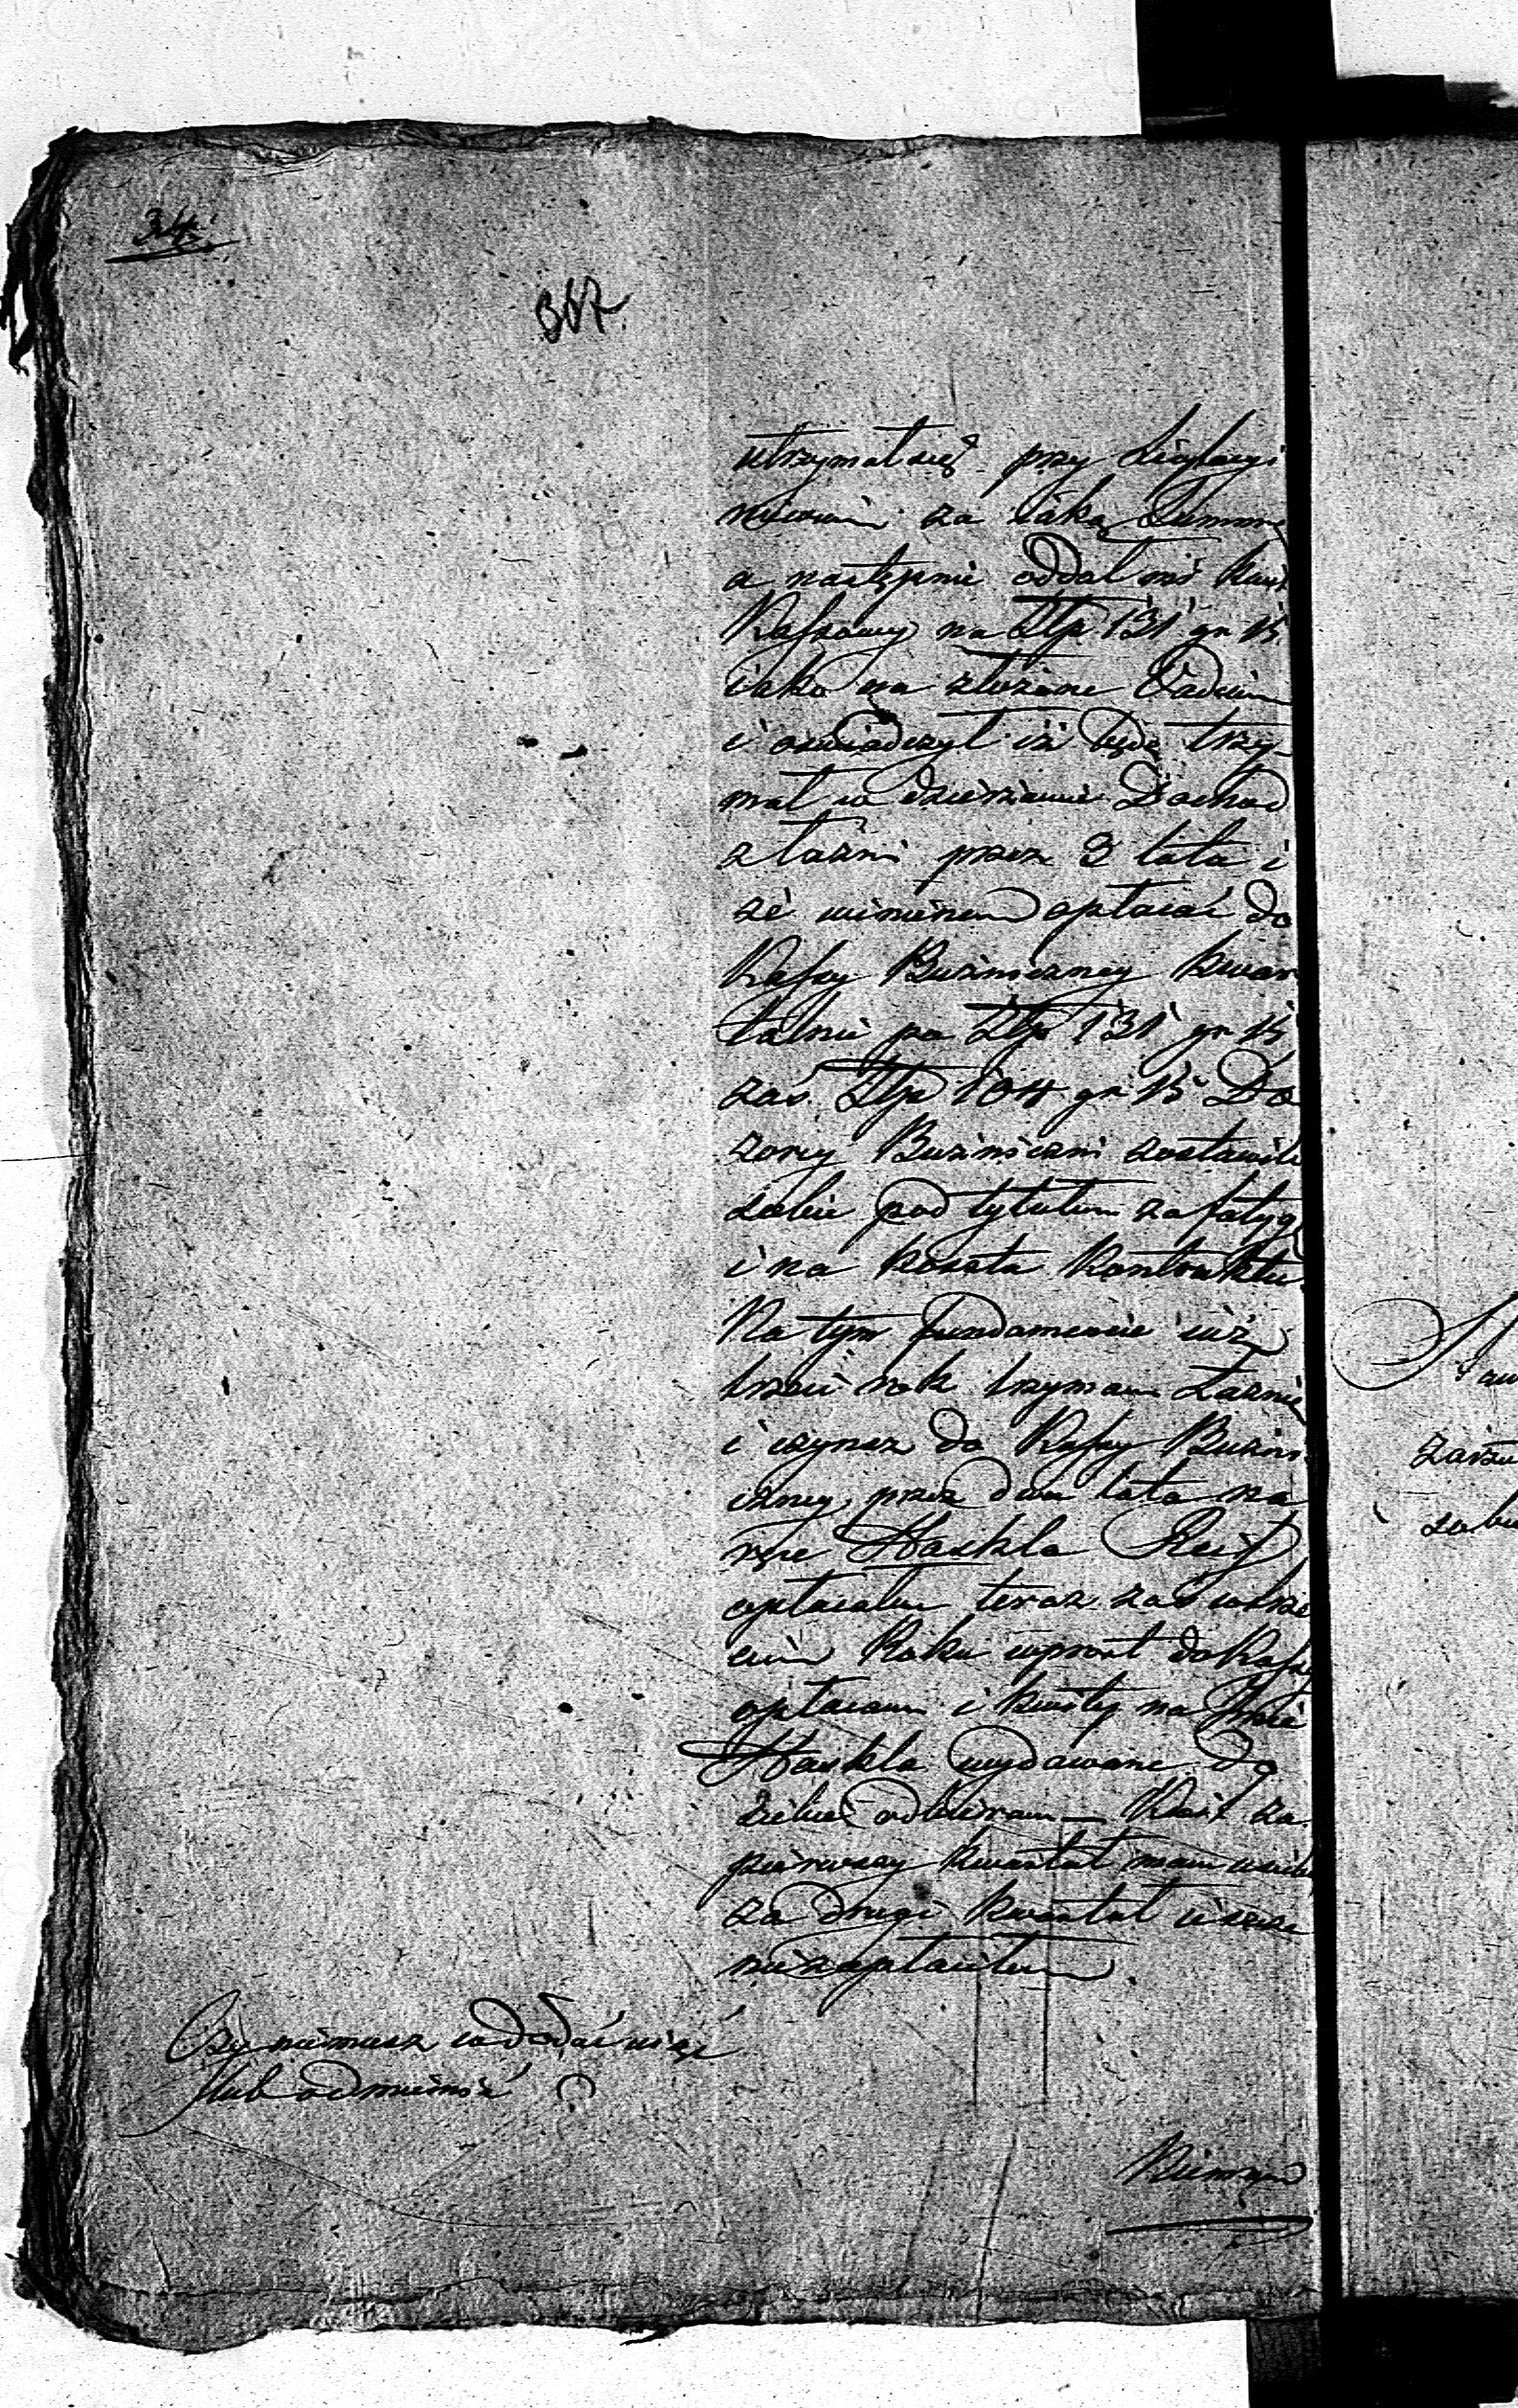 34.
367.
utrzymał się przy Licytacyi
niewiem za iaką Summę
a następnie oddał mi kwit
Kassowy na Złp 131 gr 15
iako na złożone Vadium
i oswiadczył iż będę trzy-
mał w dzierzawie Dochod
z łazni przez 3 lata i
że winienem opłacać do
Kassy Buzniczney kwar
talnie po Złp 131 gr 15
zaś Złp 104 gr 15 Do
zorcy Buzniczni zostawili
sobie pod tytułem za fatygę
i na koszta Kontraktu.
Na tym fundamencie iuż
trzeci rok trzymam Łaznię
i czynsz do Kassy Buzni
czney przez dwa lata na
ręce Haskla Reif
opłacałem teraz zaś w trze
cim Roku wprost do Kassy
opłacam i kwity na Imie
Haskla wydawane do
siebie odbieram — Kwit za
pierwszy kwartał mam u siebie
za drugi kwartał ieszcze
niezapłaciłem.
Czy niemasz co dodać więcy
lub odmienić?
Niemam